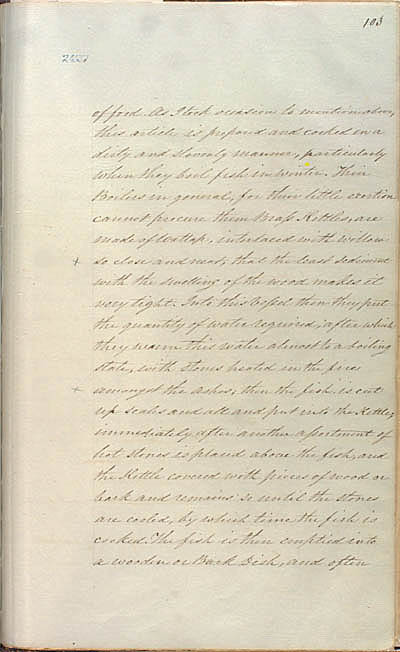 103
of food. As I took occasion to mention above,
this article is prepared and cooked in a
dirty and slovenly manner, particularly
when they boil fish in winter. Their
Boilers in general, for their little exertion
cannot procure them Brass Kettles, are
made of Wattap, interlaced with Willow
+ so close and neat, that the least sediment
with the swelling of the wood makes it
very tight. Into this Vessel then they put
the quantity of water required; after which
they warm this water almost to a boiling
state, with stones heated in the fire
+ amongst the ashes; then the fish is cut
up scales and all and put into the Kettle;
immediately after another assortment of
hot stones is placed above the fish, and
the Kettle covered with pieces of wood or
bark and remains so until the stones
are cooled, by which time the fish is
cooked. The fish is then emptied into
a wooden or Bark Dish, and often